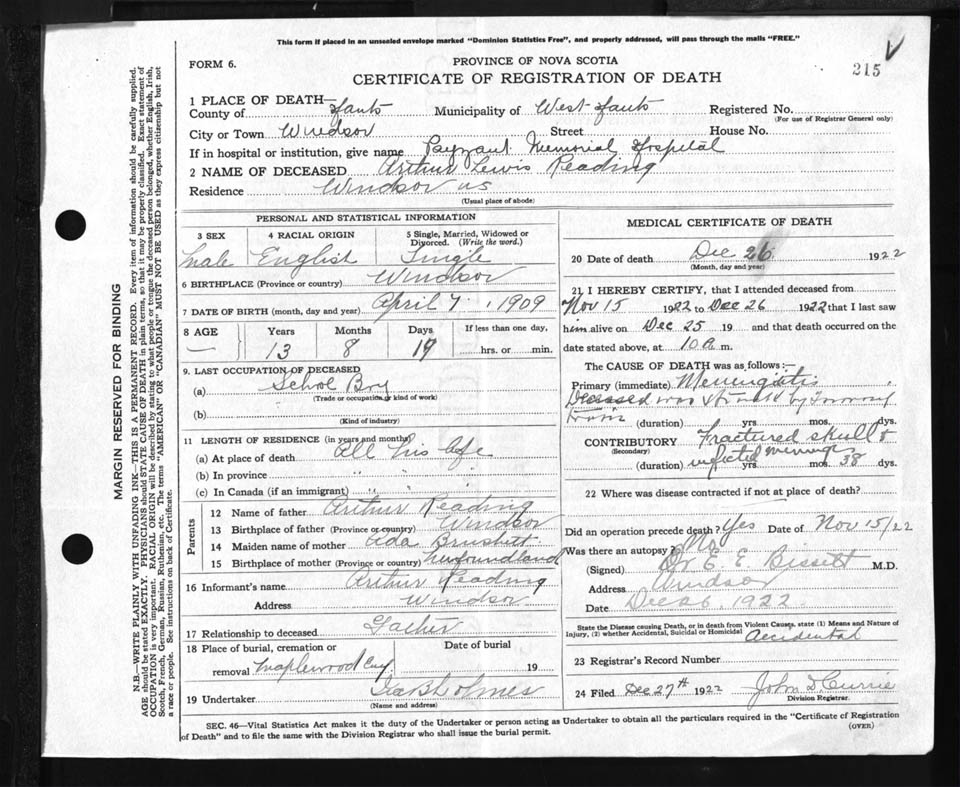 This form if placed in an unsealed envelope marked "Dominion Statistics Free", and properly addressed, will pass through the mails "FREE."
FORM 6.
PROVINCE OF NOVA SCOTIA
215
CERTIFICATE OF REGISTRATION OF DEATH
1 PLACE OF DEATH—
County of Hants Municipality of West Hants Registered No.
(For use of Registrar General only)
City or Town Windsor Street House No.
If in hospital or institution, give name Payzant Memorial Hospital
2 NAME OF DECEASED Arthur Lewis Reading
Residence Windsor NS
(Usual place of abode)
PERSONAL AND STATISTICAL INFORMATION
3 SEX 4 RACIAL ORIGIN 5 Single, Married, Widowed or Divorced. (Write the word.)
Male English Single
6 BIRTHPLACE (Province or country) Windsor
7 DATE OF BIRTH (month, day and year) April 7, 1909
8 AGE Years Months Days If less than one day,
— 13 8 19 hrs. or min.
9. LAST OCCUPATION OF DECEASED
(a) School Boy
(Trade or occupation or kind of work)
(b)
(Kind of industry)
11 LENGTH OF RESIDENCE (in years and months)
(a) At place of death All his life
(b) In province " " "
(c) In Canada (if an immigrant) " " "
Parents
12 Name of father Arthur Reading
13 Birthplace of father (Province or country) Windsor
14 Maiden name of mother Ada
15 Birthplace of mother (Province or country) Newfoundland
16 Informant's name Arthur Reading
Address Windsor
17 Relationship to deceased Father
18 Place of burial, cremation or Date of burial
removal Maplewood Cey. 19
19 Undertaker
(Name and address)
MEDICAL CERTIFICATE OF DEATH
20 Date of death Dec 26 1922
(Month, day and year)
21 I HEREBY CERTIFY, that I attended deceased from
Nov 15 1922 to Dec 26 1922 that I last saw
him alive on Dec 25 19 and that death occurred on the
date stated above, at 10 a m.
The CAUSE OF DEATH was as follows:—
Primary (immediate) Meningitis
Deceased was struck by
train (duration) yrs. mos. dys.
CONTRIBUTORY Fractured skull &
(Secondary)
(duration) infected yrs. mos. 38 dys.
22 Where was disease contracted if not at place of death?
Did an operation precede death? Yes Date of Nov 15/22
Was there an autopsy? No
(Signed) Dr E. E. Bissett M.D.
Address Windsor
Date Dec 26. 1922.
State the Disease causing Death, or in death from Violent Causes, state (1) Means and Nature of
Injury, (2) whether Accidental, Suicidal or Homicidal Accidental
23 Registrar's Record Number
24 Filed Dec 27th 1922 John D Currie
Division Registrar.
SEC. 46—Vital Statistics Act makes it the duty of the Undertaker or person acting as Undertaker to obtain all the particulars required in the "Certificate of Registration
of Death" and to file the same with the Division Registrar who shall issue the burial permit. (OVER)
MARGIN RESERVED FOR BINDING
N.B.—WRITE PLAINLY WITH UNFADING INK—THIS IS A PERMANENT RECORD. Every item of information should be carefully supplied.
AGE should be stated EXACTLY. PHYSICIANS should STATE CAUSE OF DEATH in plain terms, so that it may be properly classified. Exact statement of
OCCUPATION is very important. RACIAL ORIGIN will be described by stating to what people or tongue the deceased person belonged, whether English, Irish,
Scotch, French, German, Russian, Ruthenian, etc. The terms "AMERICAN" OR "CANADIAN" MUST NOT BE USED as they express citizenship but not
a race or people. See instructions on back of Certificate.